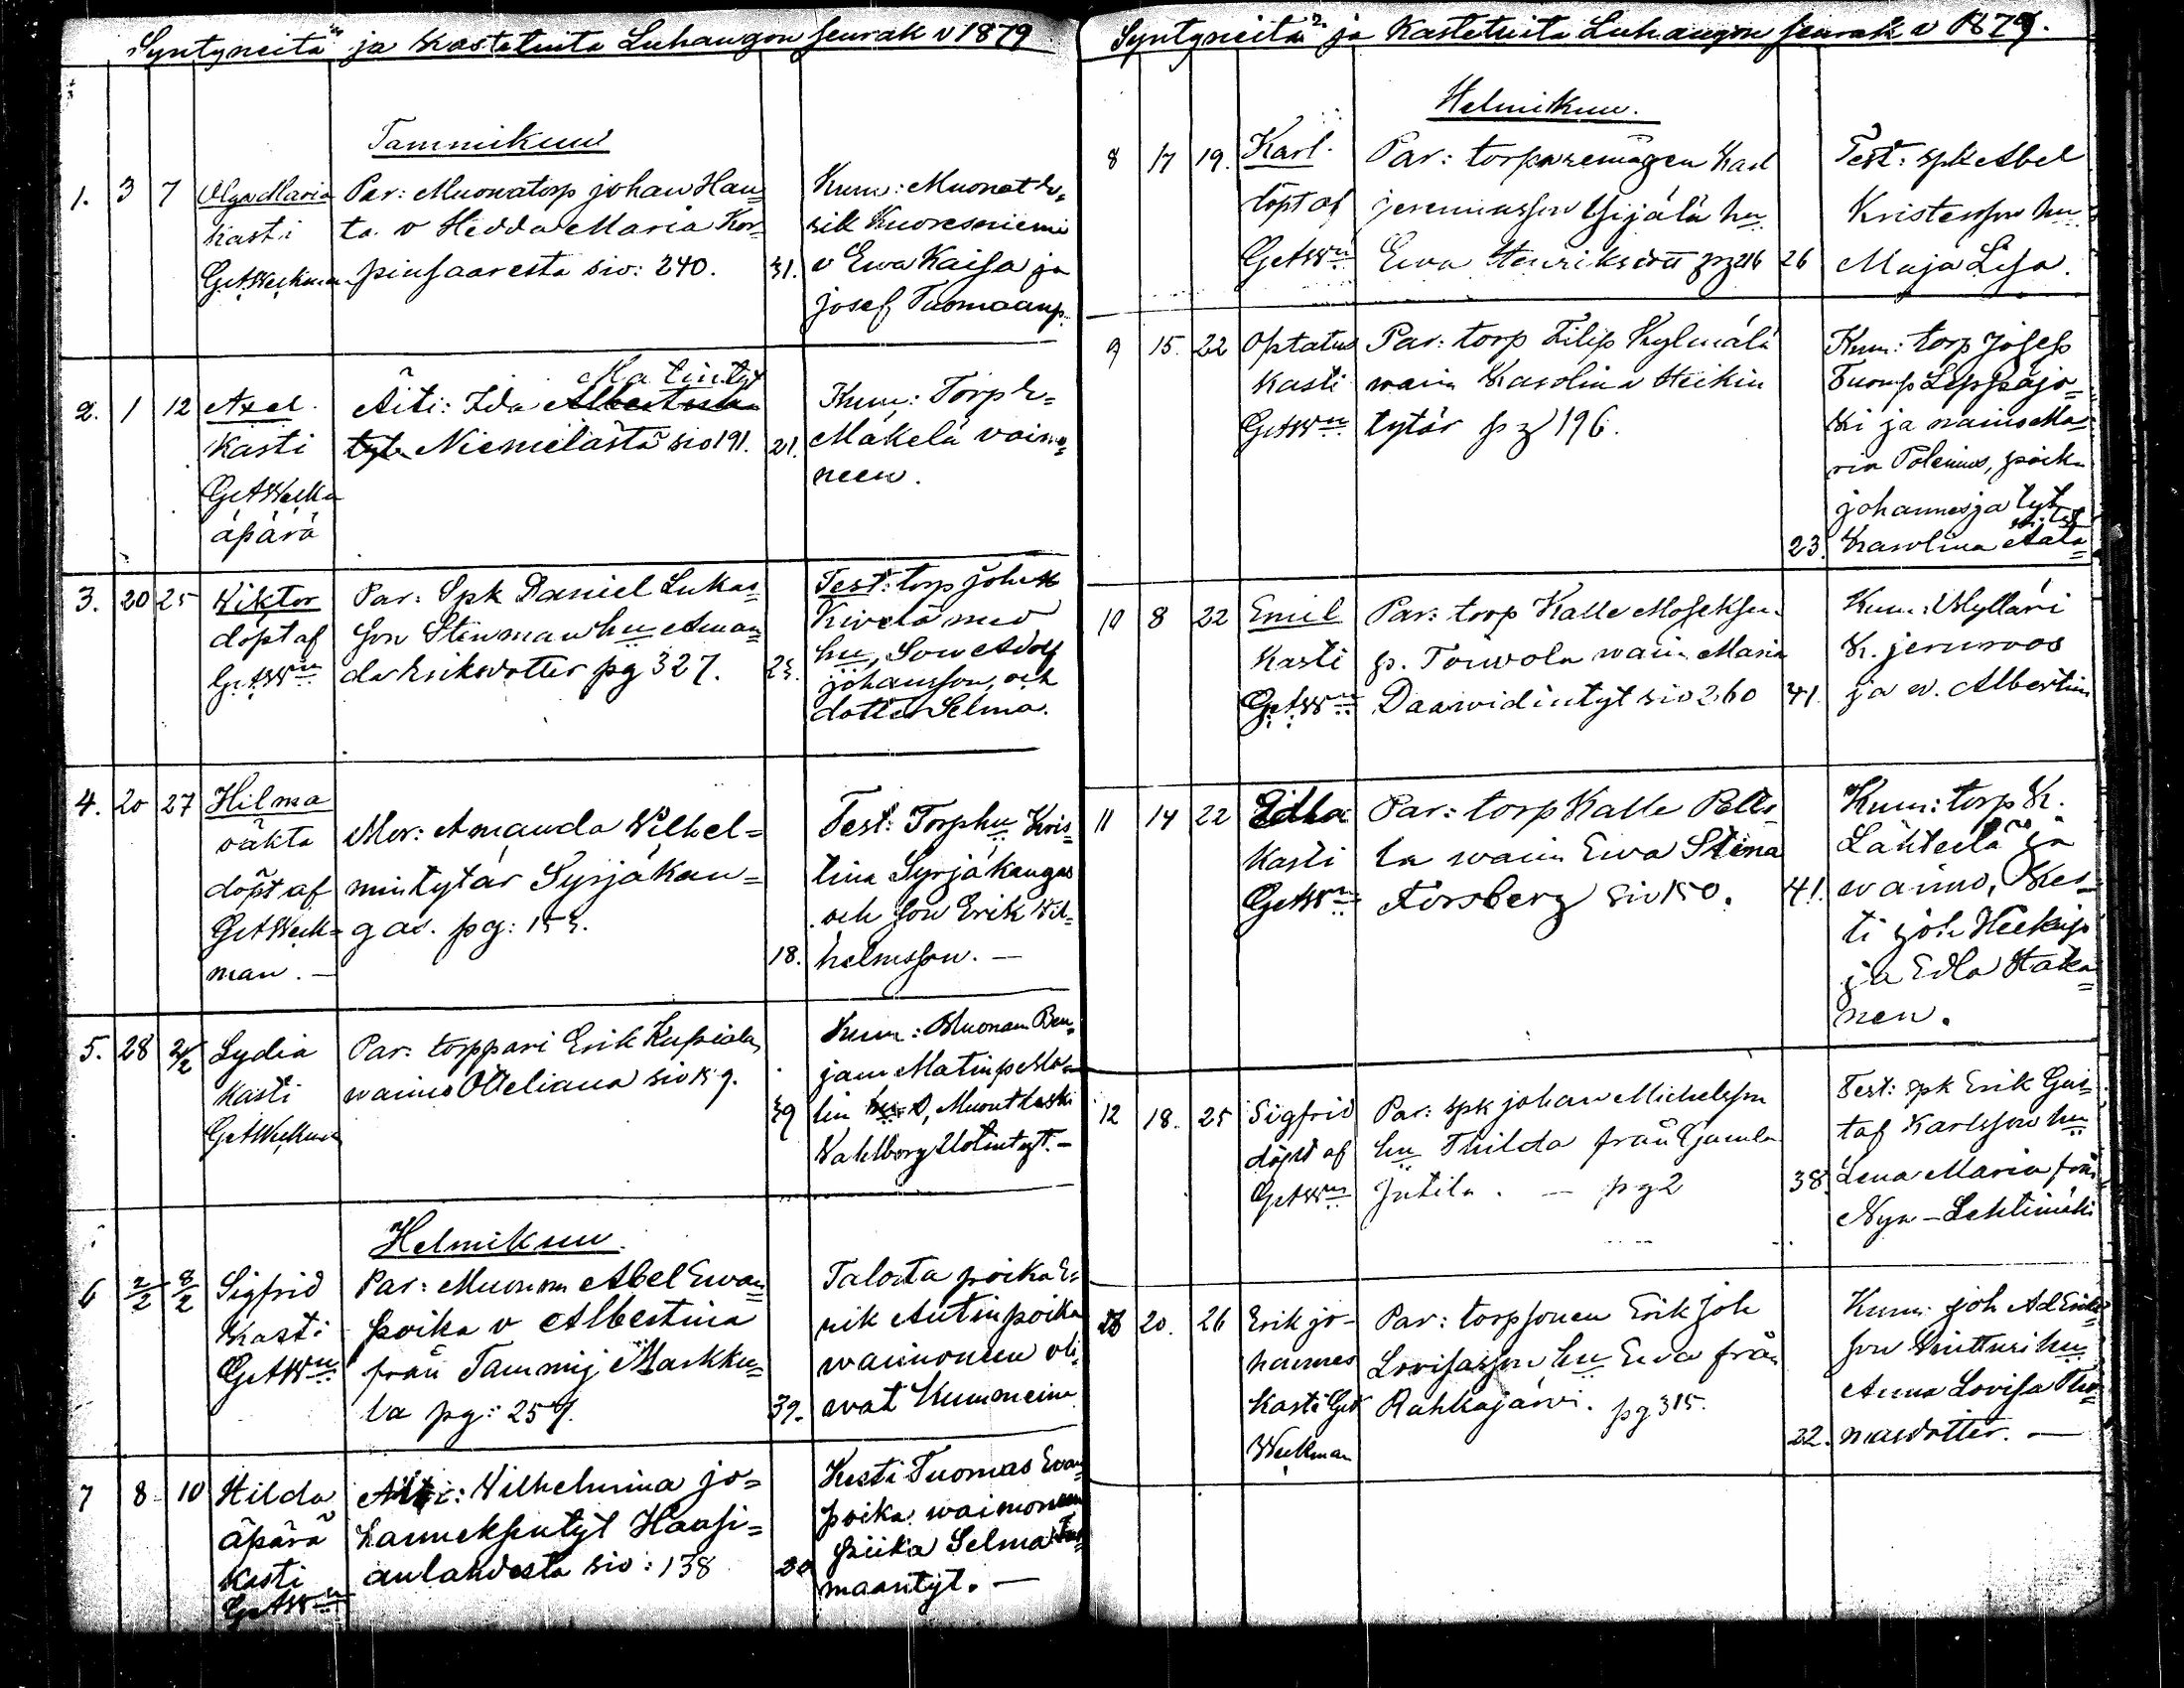 Syntyneitä ja Kastetuita Luhangon seurak v 1879
Tammikuu
1. 3 7 Olga Maria
Kasti
G.A.Weckman
Par: Muonatorp johan Hau=
ta v Hedda Maria Kor=
pinsaaresta siv: 240.
31.
Kum: Muonat
rik Kuoresniemi
v Ewa Kaisa ja
josef Tuomaanp.
2. 1 12 Axel.
Kasti
äpärä
Matintyt
Äiti: Ida Albertina
tyt. Niemelästä siv 191.
21.
Kum: Torp E=
Mäkelä vaimo=
neen.
3. 20 25 Wiktor
döpt af
Par: Spk Daniel Lukas
son Stenman hu Aman=
da Eriksdotter pg 327.
23.
Test: torp joh
Kivelä med
hu, Son Adolf
johansson, och
dotter Selma.
4. 20 27 Hilma
oäkta
döpt af
G.A.Weck=
man. —
Mor: Amanda Vilhel=
mintytär Syrjäkan=
gas. pg: 153.
18.
Test: Torp hu Kris=
tina Syrjäkangas
och son Erik Wil=
helmsson. —
5. 28 2/2 Lydia
Kasti
G.A.Weckman
Par: torppari Erik
waimo Otteliana siv 159.
39
Kum: Muonam Ben=
jam Matinp Ma=
lin Muont leski
Wahlborg tyt. —
Helmikuu
6 2/2 8/2 Sigfrid
Kasti
Par: Muonam Abel Ewan=
poika v Albertina
från Tammij Markku=
la pg: 257.
39.
Talonta poika E=
rik Antinpoika
waimoneen oli=
wat Kummeina
7 8 10 Hilda
äpärä
Kasti
Äiti: Wilhelmina jo=
hanneksentyt Haasi=
anlahdesta siv: 138
20
Kesti Tuomas Ewan
poika waimoneen
piika Selma Tuo=
maantyt. —
Syntyneitä ja Kastetuita Luhangon seurak v 1879.
Helmikuu.
8 17 19. Karl.
döpt af
Par: torparemågen Karl
jeremiasson Ysijälä hu
Ewa Henriksdtt pg 216
26
Test: spk Abel
Kristersson hu
Maja Lisa.
9 15. 22 Optatus
Kasti
Par: torp Filip Kylmälä
waim Karolina Heikin
tytär pg 196.
23.
Kum: torp Josef
Tuomp Leppäjo=
ki ja waimo Ma=
ria Polenius, poika
johannes ja tyt
Karolina
10 8 22 Emil
Kasti
Par: torp Kalle Moseksen
p. Towola waim Maria
Daawidintyt siv 260
41
Kum: Mylläri
K. jernroos
ja w. Albertina
11 14 22 Edla
Kasti
Par: torp Kalle Pelto
la waim Ewa Stina
Forsberg siv 150.
41.
Kum: torp K.
Lähteelä ja
waimo, Kes=
ti joh Heikinp
ja Edla Haka=
nen.
12 18. 25 Sigfrid
döpt af
Par: spk johan Michelsson
hu Thilda från Gamla
Jutila. — pg 2
38.
Test: spk Erik Gus=
taf Karlsson hu
Lena Maria från
Nya-Lehtimäki
13 20. 26 Erik jo-
hannes
Kasti
Weckman
Par: torpsonen Erik Joh
Lovisasson hu Ewa från
Rahkajärvi. pg 315.
22.
Kum: joh Ad Eriks=
son hu
Anna Lovisa Tho=
masdotter. —